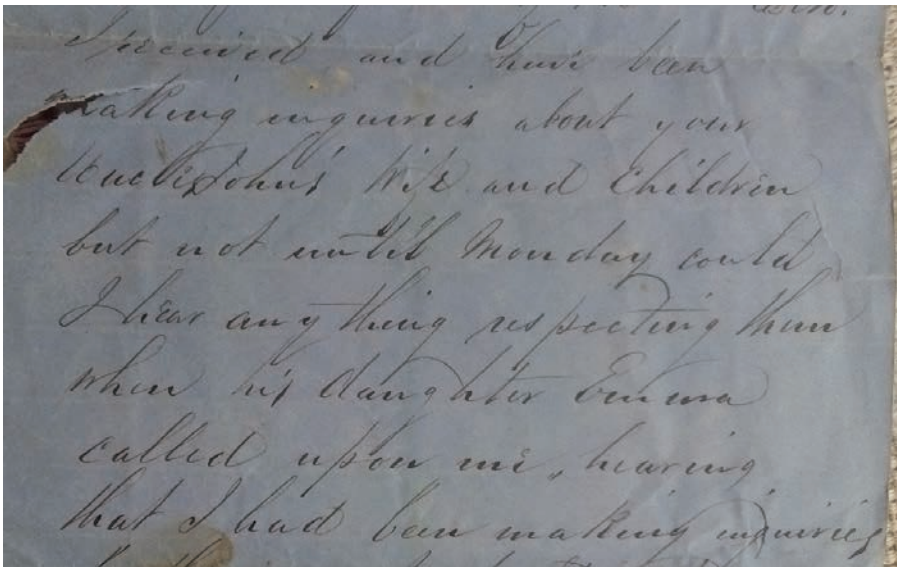 I received and have been
making inquiries about your
Uncle John's Wife and Children
but not until Monday could
I hear any thing respecting them
when his daughter Emma
called upon me, hearing
that I had been making inquiries